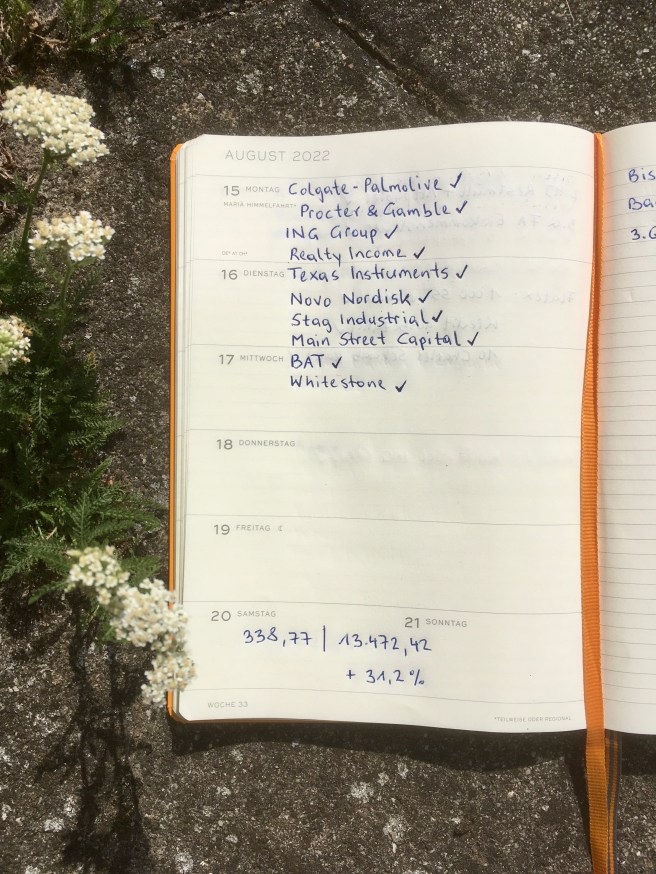 AUGUST 2022
15 MONTAG Colgate-Palmolive ✓
MARIA HIMMELFAHRT*
Procter & Gamble ✓
ING Group ✓
Realty Income ✓
16 DIENSTAG Texas Instruments ✓
Novo Nordisk ✓
Stag Industrial ✓
Main Street Capital ✓
17 MITTWOCH BAT ✓
Whitestone ✓
18 DONNERSTAG
19 FREITAG ☾
20 SAMSTAG
21 SONNTAG
338,77 | 13.472,42
+ 31,2 %
WOCHE 33
*TEILWEISE ODER REGIONAL
Bis
3.